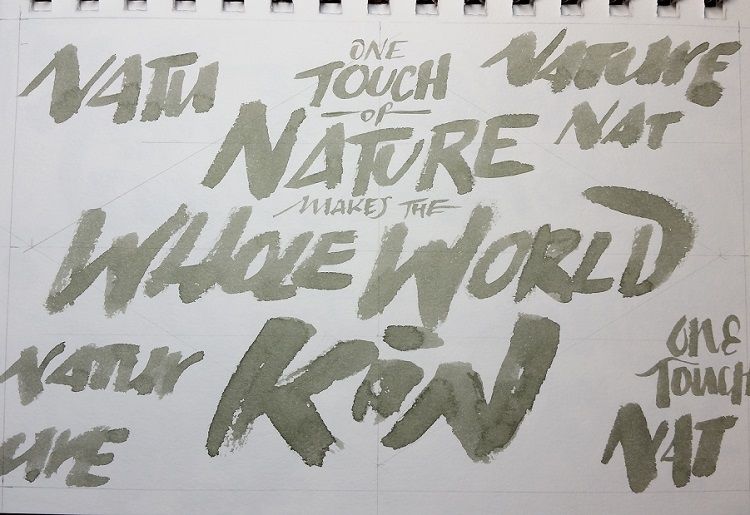 NATU
ONE
TOUCH
OF
NATURE
MAKES THE
WHOLE WORLD
KiN
NATURE
NAT
NATUR
URE
ONE
TOUCH
NAT